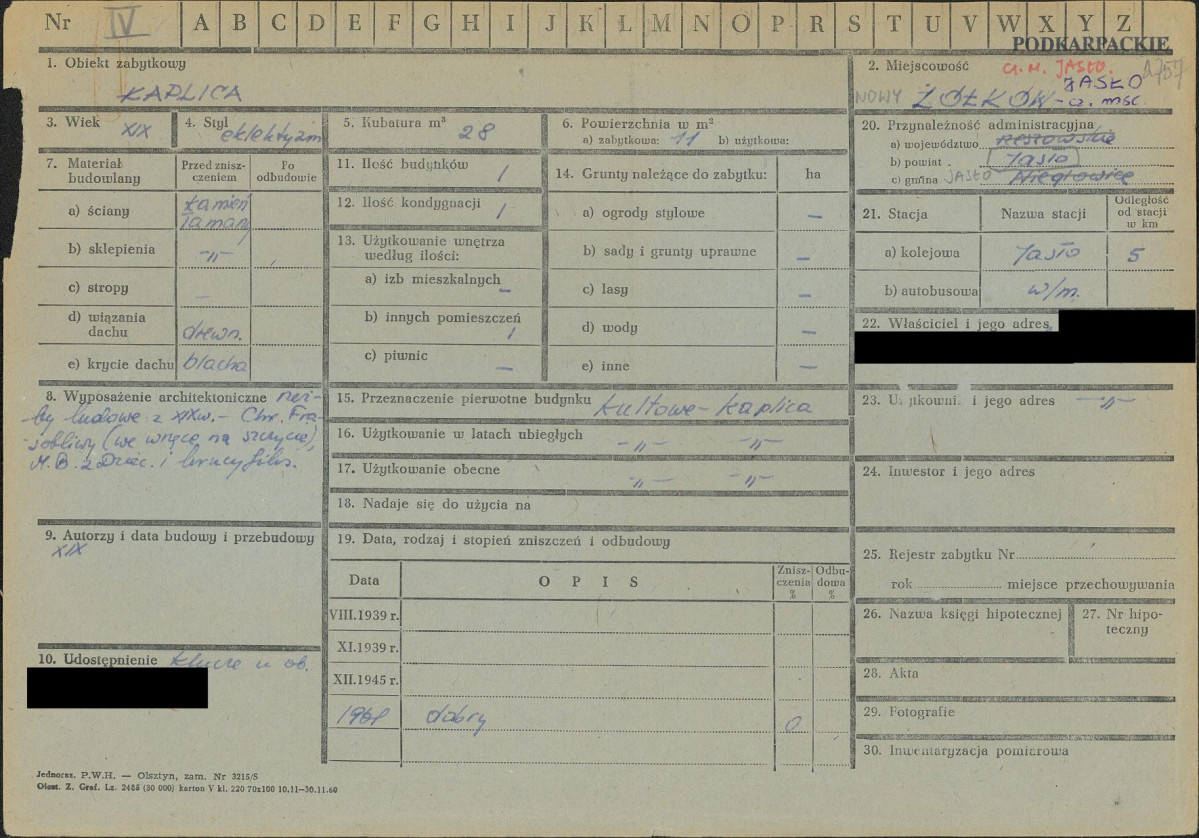 Nr IV A B C D E F G H I J K L Ł M N O P R S T U V W X Y Z
PODKARPACKIE
1. Obiekt zabytkowy
KAPLICA
2. Miejscowość
cz. m. JASŁO.
JASŁO
NOWY ŻÓŁKÓW - cz. msc.
3. Wiek XIX
4. Styl eklektyzm
5. Kubatura m³ 28
6. Powierzchnia w m²
a) zabytkowa: 11 b) użytkowa:
7. Materiał budowlany
Przed zniszczeniem
Po odbudowie
a) ściany kamień łamany
b) sklepienia -„-
c) stropy —
d) wiązania dachu drewn.
e) krycie dachu blacha
8. Wyposażenie architektoniczne rzeź-
-by ludowe z XIXw. - Chr. Fra-
-sobliwy (we wnęce na szczycie),
M.B. z Dziec. i krucyfiks.
9. Autorzy i data budowy i przebudowy
XIX
10. Udostępnienie klucze u ob.
11. Ilość budynków 1
12. Ilość kondygnacji 1
13. Użytkowanie wnętrza
według ilości:
a) izb mieszkalnych —
b) innych pomieszczeń 1
c) piwnic —
14. Grunty należące do zabytku: ha
a) ogrody stylowe —
b) sady i grunty uprawne —
c) lasy —
d) wody —
e) inne —
15. Przeznaczenie pierwotne budynku kultowe - kaplica
16. Użytkowanie w latach ubiegłych -„- -„-
17. Użytkowanie obecne -„- -„-
18. Nadaje się do użycia na
19. Data, rodzaj i stopień zniszczeń i odbudowy
Data OPIS Zniszczenia % Odbudowa %
VIII.1939 r.
XI.1939 r.
XII.1945 r.
dobry 0
20. Przynależność administracyjna
a) województwo rzeszowskie
b) powiat . Jasło
c) gmina JASŁO Niegłowice
21. Stacja Nazwa stacji Odległość od stacji w km
a) kolejowa Jasło 5
b) autobusowa w/m.
22. Właściciel i jego adres
23. Użytkowni. i jego adres -„-
24. Inwestor i jego adres
25. Rejestr zabytku Nr
rok miejsce przechowywania
26. Nazwa księgi hipotecznej
27. Nr hipoteczny
28. Akta
29. Fotografie
30. Inwentaryzacja pomiarowa
Jednoraz. P.W.H. — Olsztyn, zam. Nr 3215/S
Olszt. Z. Graf. Lz. 2485 (30 000) karton V kl. 220 70x100 10.11—30.11.60